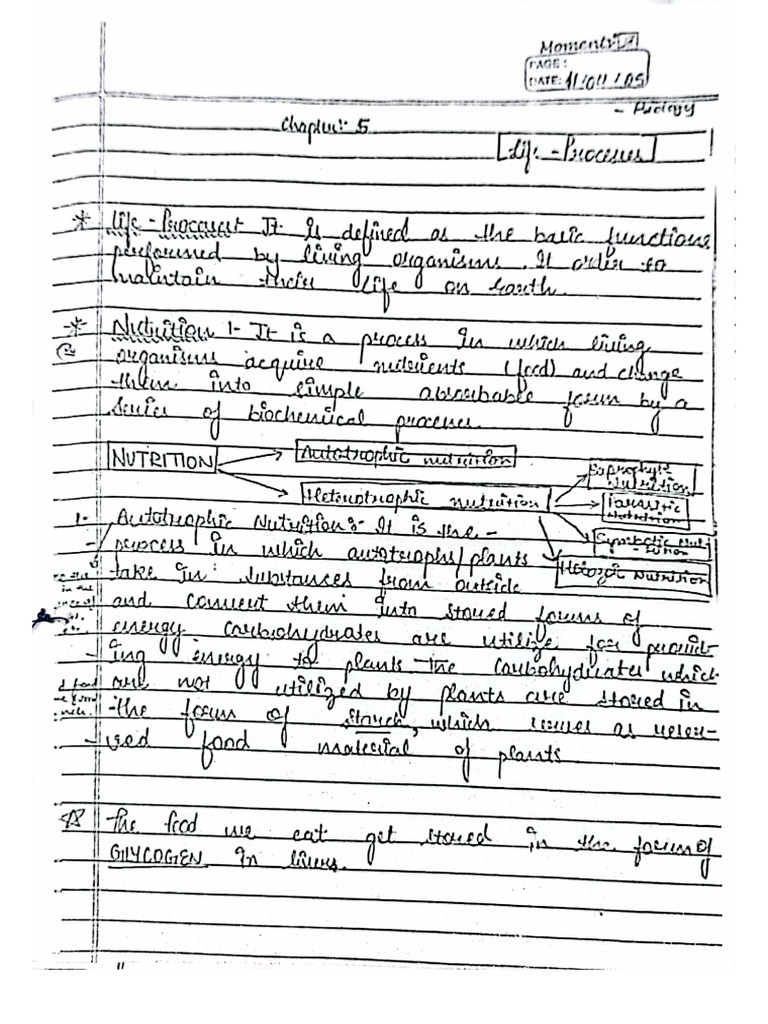 Moments
PAGE:
DATE: 11/04/05
- Biology
Chapter: 5
Life - Processes
* Life - Processes: It is defined as the basic functions
performed by living organisms. It order to
maintain their life on Earth.
* Nutrition :- It is a process in which living
organisms acquire nutrients (food) and change
them into simple absorbable form by a
Series of biochemical process.
NUTRITION
Autotrophic nutrition
Heterotrophic nutrition
Saprophytic Nutrition
Parasitic Nutrition
Symbiotic Nut-
rition
Holozoic Nutrition
1- Autotrophic Nutrition:- It is the -
- process in which autotrophs/plants
take in substances from outside
and convert them into stored forms of
energy carbohydrates are utilize for provid-
- ing energy to plants the carbohydrates which
are not utilized by plants are stored in
the form of starch, which serves as reser-
- ved food material of plants
The food we eat get stored in the form of
GLYCOGEN in liver.